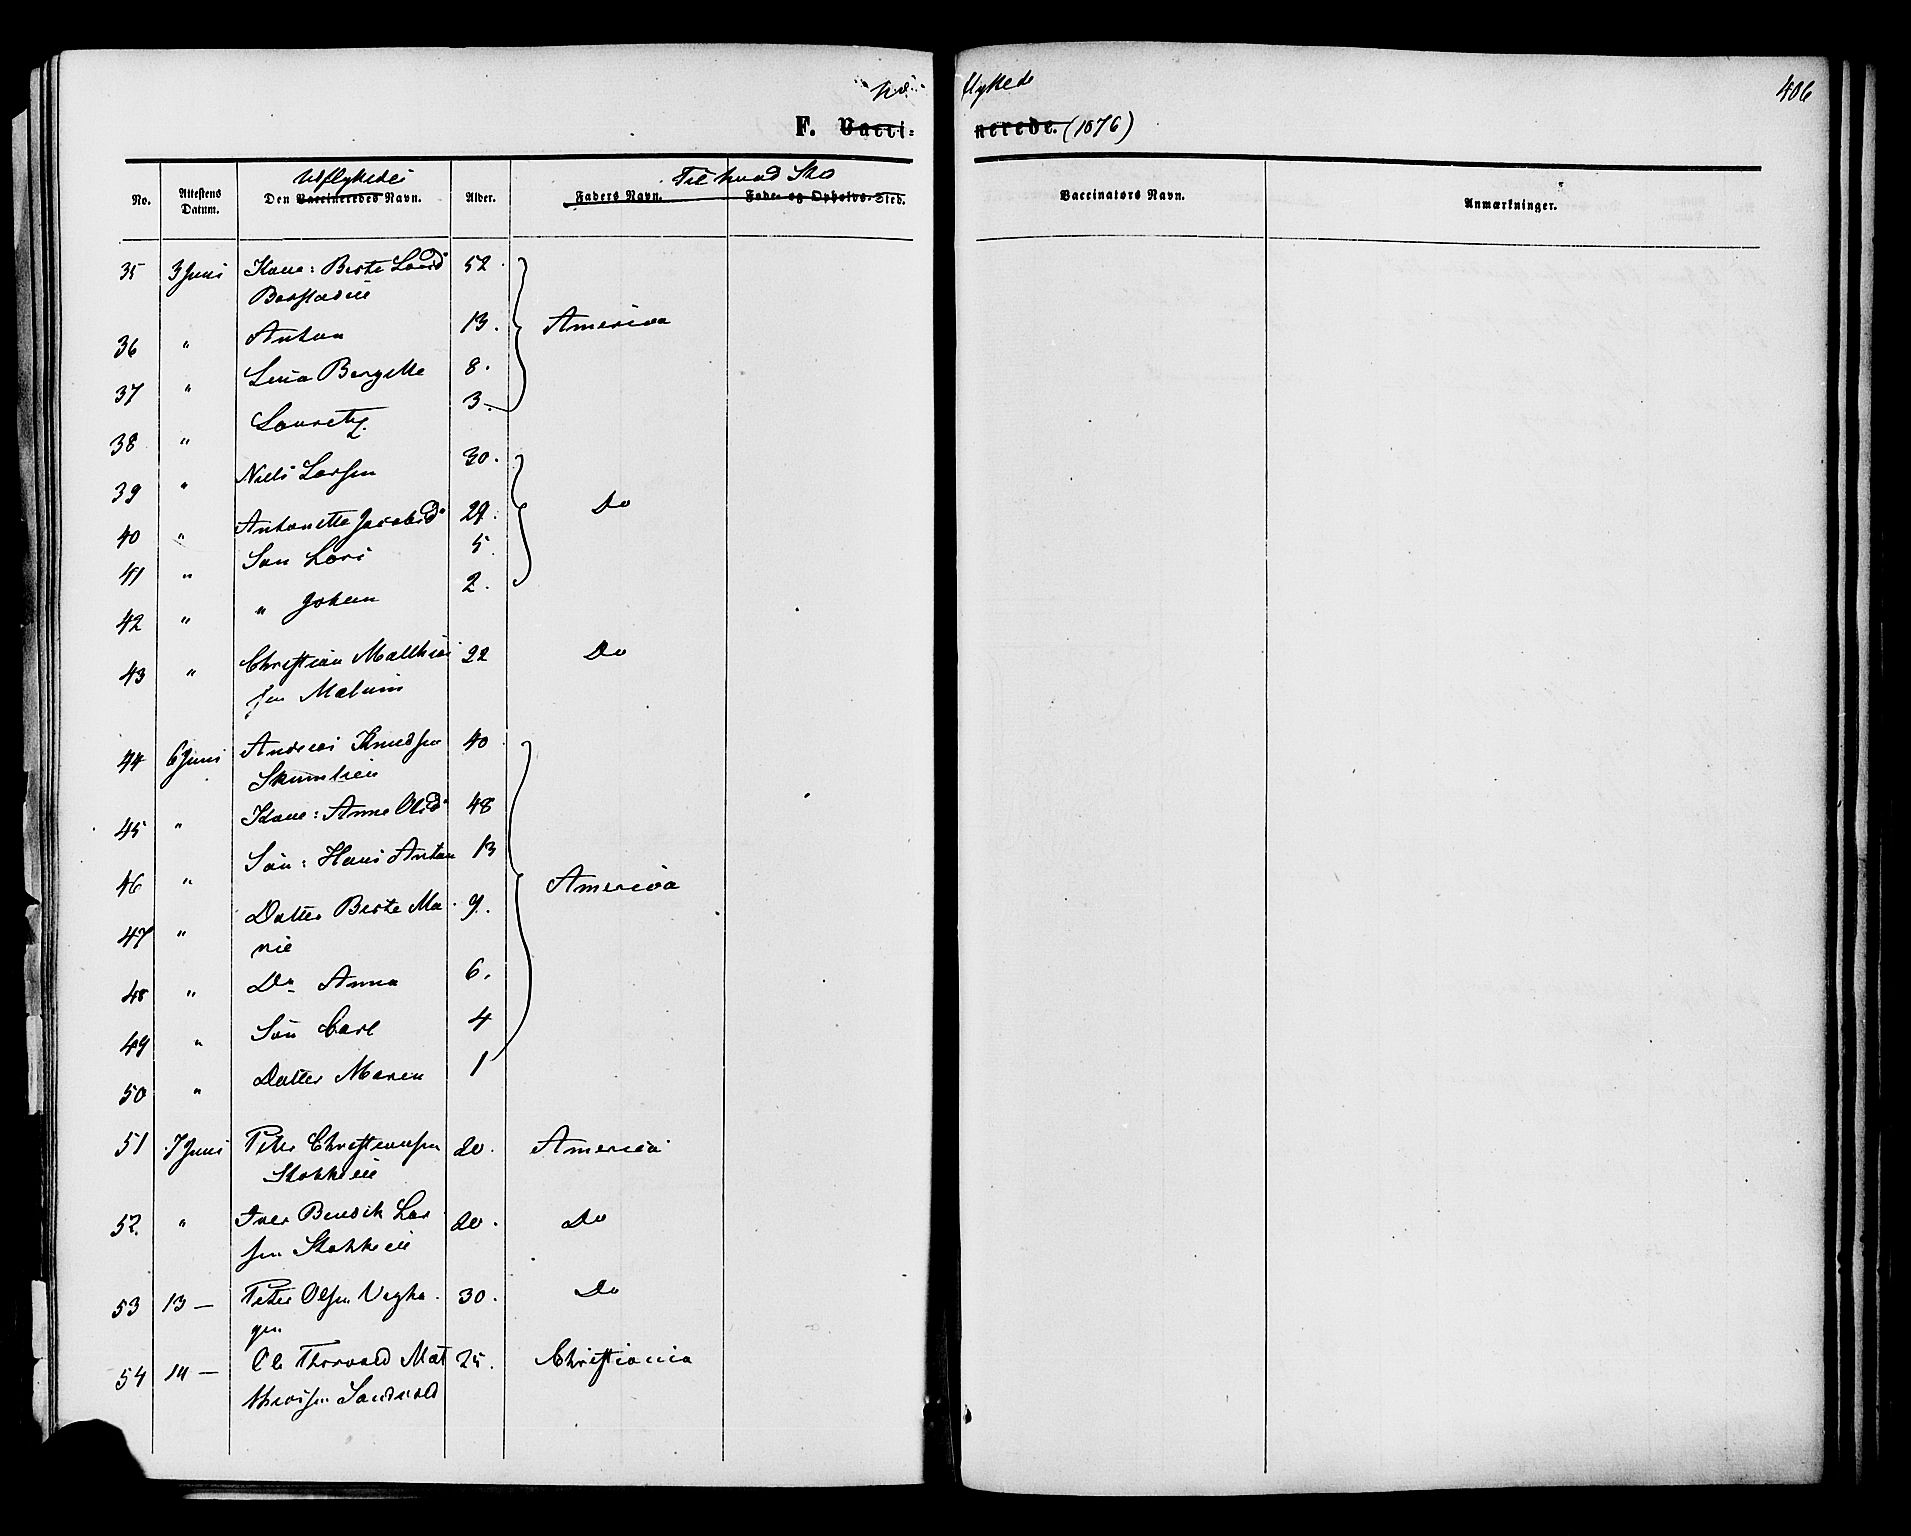 Udflyttede 406
F. Vaccinerede. (1876)
No. Attestens Datum. Udflyttedes Den Vaccineredes Navn. Alder. Til hvad Sted Faders Navn. Føde- og Opholds-Sted. Vaccinators Navn. Anmærkninger.
35 3 Juni Kone: Berte Larsd 52
Borstadeie
36 " Anton 13. America
37 " Lina Bergitte 8.
38 " Lauretz 3.
39 " Niels Larsen 30.
40 " Antonette Jacobsd 29. Do
41 " Søn Lars 5.
42 " " Johan 2.
43 " Christian Matthias 22 Do
sen Mælum
44 6 Juni Andreas Knudsen 40
Skumlien
45 " Kone: Anne Olsd 48
46 " Søn: Hans Anton 13
America
47 " Datter Berte Ma 9.
rie
48 " Do Anna 6.
49 " Søn Carl 4
50 " Datter Maren 1
51 7 Juni Peter Christiansen 20. America
Stokkeeie
52. " Iver Bendik Lar 20. Do
sen Stokkeeie
53 13 — Peter Olsen Vegha 30. Do
gen
54 14 — Ole Thorvald Mat 25. Christiania
thiassen Sandvold